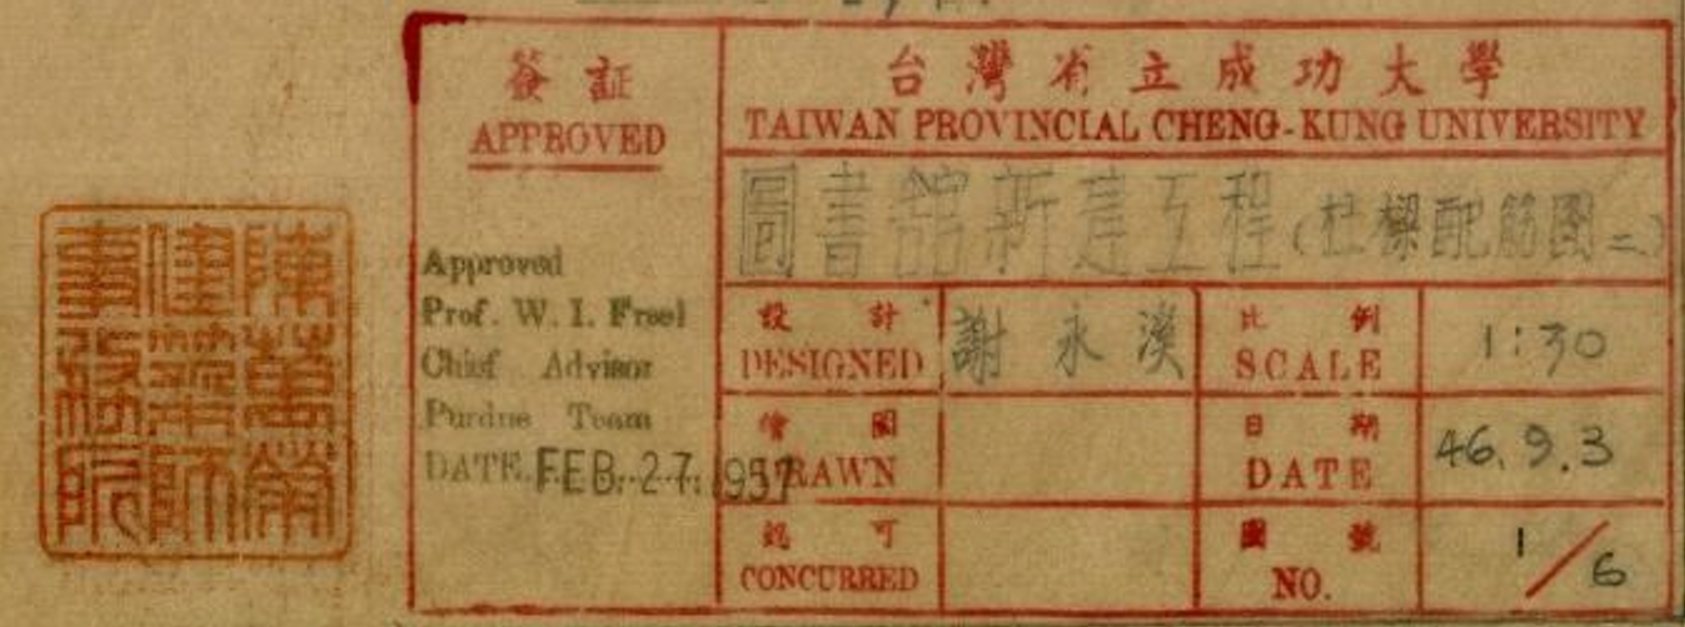 陳萬榮
建築師
事務所
簽証
APPROVED
Approved
Prof. W. I. Freel
Chief Advisor
Purdue Team
DATE. FEB. 27. 1957
台灣省立成功大學
TAIWAN PROVINCIAL CHENG-KUNG UNIVERSITY
圖書館新建工程(柱樑配筋图二)
設計
DESIGNED
謝永溪
比例
SCALE
1:30
繪圖
DRAWN
日期
DATE
46.9.3
認可
CONCURRED
圖號
NO.
1/6